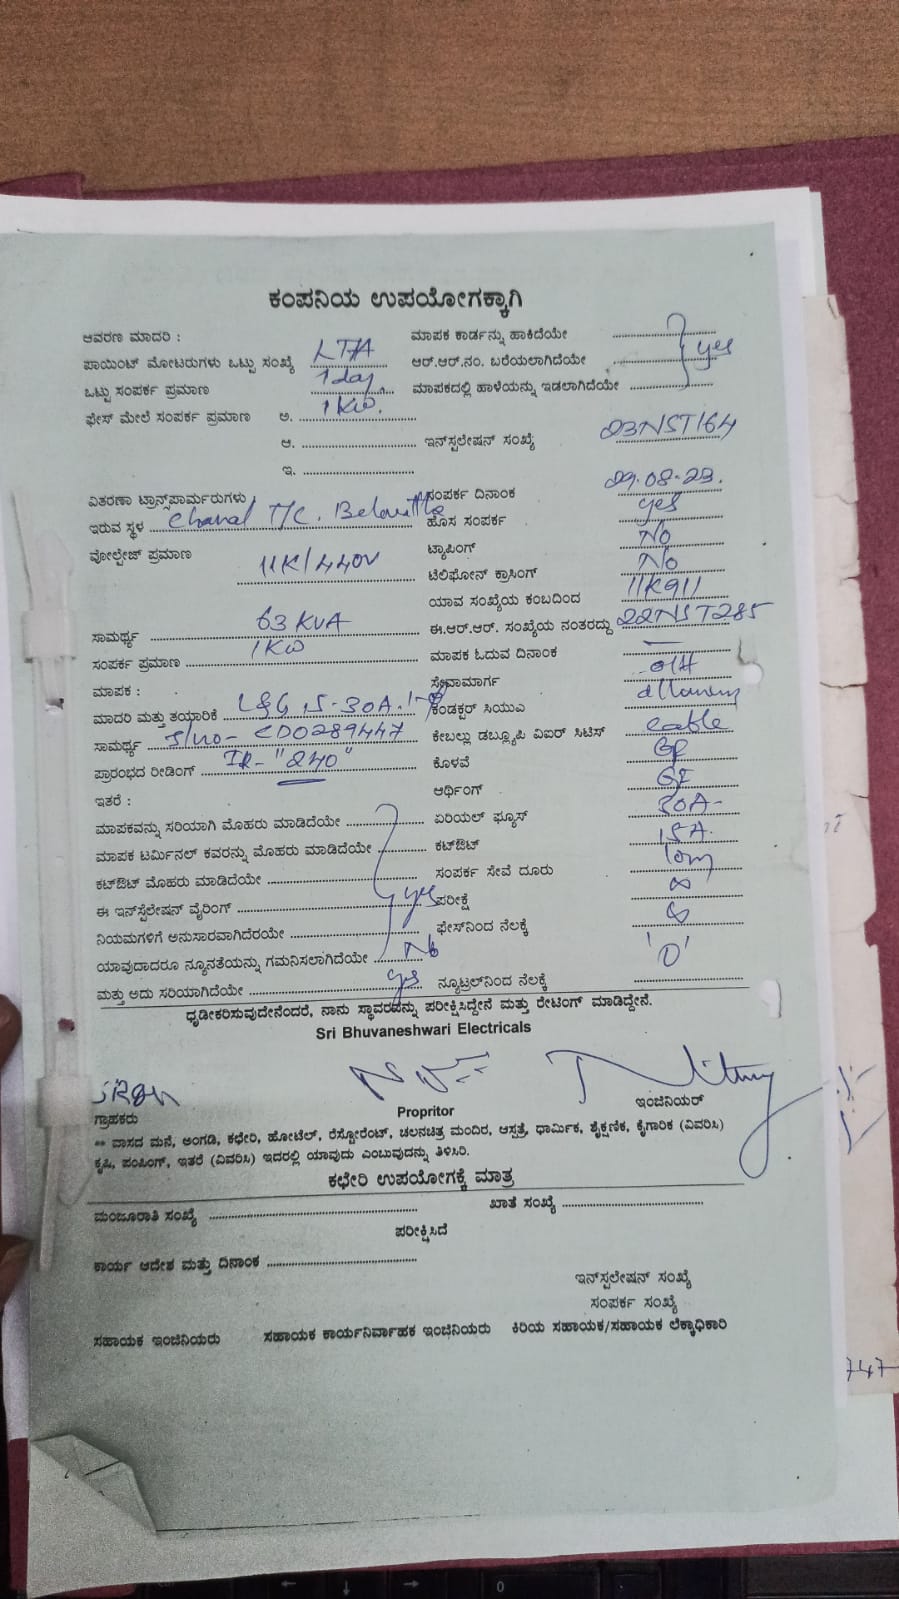 ಕಂಪನಿಯ ಉಪಯೋಗಕ್ಕಾಗಿ
ಆವರಣ ಮಾದರಿ :
ಪಾಯಿಂಟ್ ಮೋಟರುಗಳು ಒಟ್ಟು ಸಂಖ್ಯೆ
ಒಟ್ಟು ಸಂಪರ್ಕ ಪ್ರಮಾಣ 1 day
ಫೇಸ್ ಮೇಲೆ ಸಂಪರ್ಕ ಪ್ರಮಾಣ ಅ. 1KW.
ಆ.
ಇ.
ವಿತರಣಾ ಟ್ರಾನ್ಸ್‌ಪಾರ್ಮರುಗಳು
ಇರುವ ಸ್ಥಳ T/C.
ವೋಲ್ಟೇಜ್ ಪ್ರಮಾಣ 11K/440V
ಸಾಮರ್ಥ್ಯ 63 KVA
ಸಂಪರ್ಕ ಪ್ರಮಾಣ 1KW
ಮಾಪಕ :
ಮಾದರಿ ಮತ್ತು ತಯಾರಿಕೆ L&G 5-30A.
ಸಾಮರ್ಥ್ಯ S/no- CD0289447
ಪ್ರಾರಂಭದ ರೀಡಿಂಗ್ IR- "240"
ಇತರೆ :
ಮಾಪಕವನ್ನು ಸರಿಯಾಗಿ ಮೊಹರು ಮಾಡಿದೆಯೇ
ಮಾಪಕ ಟರ್ಮಿನಲ್ ಕವರನ್ನು ಮೊಹರು ಮಾಡಿದೆಯೇ
ಕಟ್‌ಔಟ್ ಮೊಹರು ಮಾಡಿದೆಯೇ
ಈ ಇನ್‌ಸ್ಟೆಲೇಷನ್ ವೈರಿಂಗ್ yes
ನಿಯಮಗಳಿಗೆ ಅನುಸಾರವಾಗಿದೆರಯೇ
ಯಾವುದಾದರೂ ನ್ಯೂನತೆಯನ್ನು ಗಮನಿಸಲಾಗಿದೆಯೇ No
ಮತ್ತು ಅದು ಸರಿಯಾಗಿದೆಯೇ yes
ಮಾಪಕ ಕಾರ್ಡನ್ನು ಹಾಕಿದೆಯೇ
ಆರ್.ಆರ್.ನಂ. ಬರೆಯಲಾಗಿದೆಯೇ yes
ಮಾಪಕದಲ್ಲಿ ಹಾಳೆಯನ್ನು ಇಡಲಾಗಿದೆಯೇ
ಇನ್‌ಸ್ಟಲೇಷನ್ ಸಂಖ್ಯೆ 23NST164
ಸಂಪರ್ಕ ದಿನಾಂಕ 29.08.23.
ಹೊಸ ಸಂಪರ್ಕ yes
ಟ್ಯಾಪಿಂಗ್ No
ಟೆಲಿಫೋನ್ ಕ್ರಾಸಿಂಗ್ No
ಯಾವ ಸಂಖ್ಯೆಯ ಕಂಬದಿಂದ 11K911
ಈ.ಆರ್.ಆರ್. ಸಂಖ್ಯೆಯ ನಂತರದ್ದು 22NST285
ಮಾಪಕ ಓದುವ ದಿನಾಂಕ —
ಸೇವಾಮಾರ್ಗ OH
ಕಂಡಕ್ಟರ್ ಸಿಯುಎ
ಕೇಬಲ್ಲು ಡಬ್ಲ್ಯೂಪಿ ವಿಐರ್ ಸಿಟಿಸ್ cable
ಕೊಳವೆ
ಆರ್ಥಿಂಗ್
ಏರಿಯಲ್ ಫ್ಯೂಸ್ 30A-
ಕಟ್‌ಔಟ್ 15A.
ಸಂಪರ್ಕ ಸೇವೆ ದೂರು 10m
ಪರೀಕ್ಷೆ ∞
ಫೇಸ್‌ನಿಂದ ನೆಲಕ್ಕೆ ∞
ನ್ಯೂಟ್ರಲ್‌ನಿಂದ ನೆಲಕ್ಕೆ '0'
ಧೃಡೀಕರಿಸುವುದೇನೆಂದರೆ, ನಾನು ಸ್ಥಾವರವನ್ನು ಪರೀಕ್ಷಿಸಿದ್ದೇನೆ ಮತ್ತು ರೇಟಂಗ್ ಮಾಡಿದ್ದೇನೆ.
Sri Bhuvaneshwari Electricals
ಗ್ರಾಹಕರು Propritor ಇಂಜಿನಿಯರ್
** ವಾಸದ ಮನೆ, ಅಂಗಡಿ, ಕಛೇರಿ, ಹೋಟೆಲ್, ರೆಸ್ಟೋರೆಂಟ್, ಚಲನಚಿತ್ರ ಮಂದಿರ, ಆಸ್ಪತ್ರೆ, ಧಾರ್ಮಿಕ, ಶೈಕ್ಷಣಿಕ, ಕೈಗಾರಿಕ (ವಿವರಿಸಿ)
ಕೃಷಿ, ಪಂಪಿಂಗ್, ಇತರೆ (ವಿವರಿಸಿ) ಇದರಲ್ಲಿ ಯಾವುದು ಎಂಬುವುದನ್ನು ತಿಳಿಸಿರಿ.
ಕಛೇರಿ ಉಪಯೋಗಕ್ಕೆ ಮಾತ್ರ
ಮಂಜೂರಾತಿ ಸಂಖ್ಯೆ ಖಾತೆ ಸಂಖ್ಯೆ
ಪರೀಕ್ಷಿಸಿದೆ
ಕಾರ್ಯ ಆದೇಶ ಮತ್ತು ದಿನಾಂಕ
ಇನ್‌ಸ್ಟಲೇಷನ್ ಸಂಖ್ಯೆ
ಸಂಪರ್ಕ ಸಂಖ್ಯೆ
ಸಹಾಯಕ ಇಂಜಿನಿಯರು ಸಹಾಯಕ ಕಾರ್ಯನಿರ್ವಾಹಕ ಇಂಜಿನಿಯರು ಕಿರಿಯ ಸಹಾಯಕ/ಸಹಾಯಕ ಲೆಕ್ಕಾಧಿಕಾರಿ
747